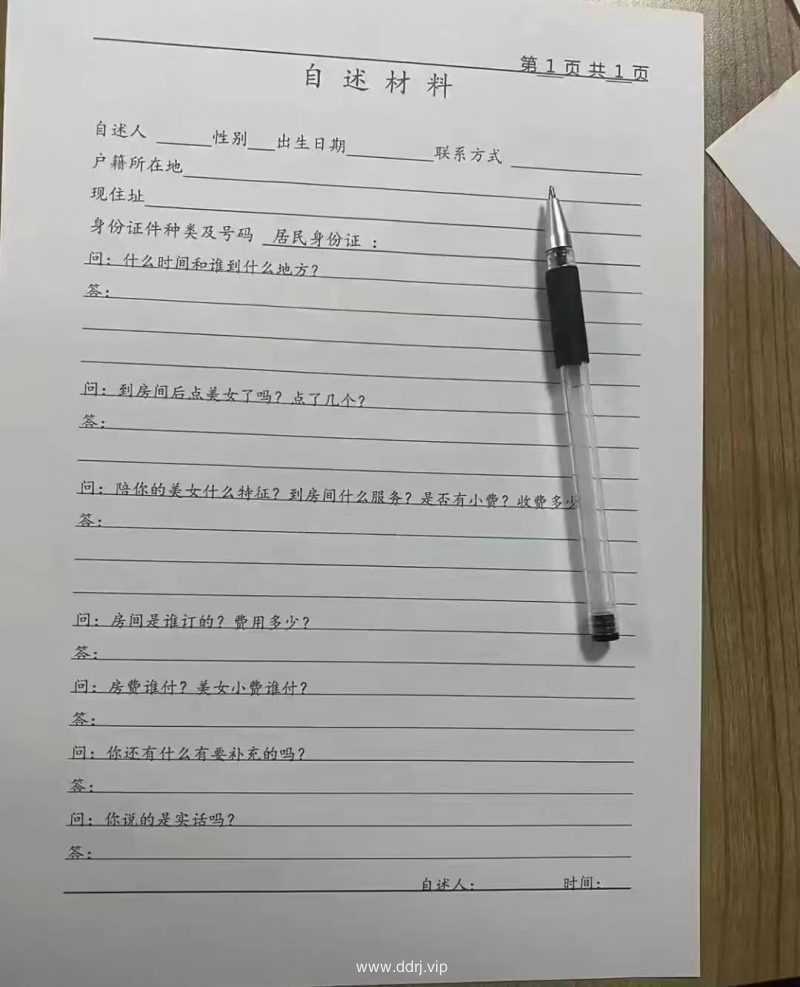 第 1 页 共 1 页
自 述 材 料
自述人 ______性别___出生日期_________联系方式 ______________
户籍所在地
现住址
身份证件种类及号码 居民身份证 ：
问：什么时间和谁到什么地方？
答：
问：到房间后点美女了吗？点了几个？
答：
问：陪你的美女什么特征？到房间什么服务？是否有小费？收费多少
答：
问：房间是谁订的？费用多少？
答：
问：房费谁付？美女小费谁付？
答：
问：你还有什么有要补充的吗？
答：
问：你说的是实话吗？
答：
自述人： 时间：
www.ddrj.vip